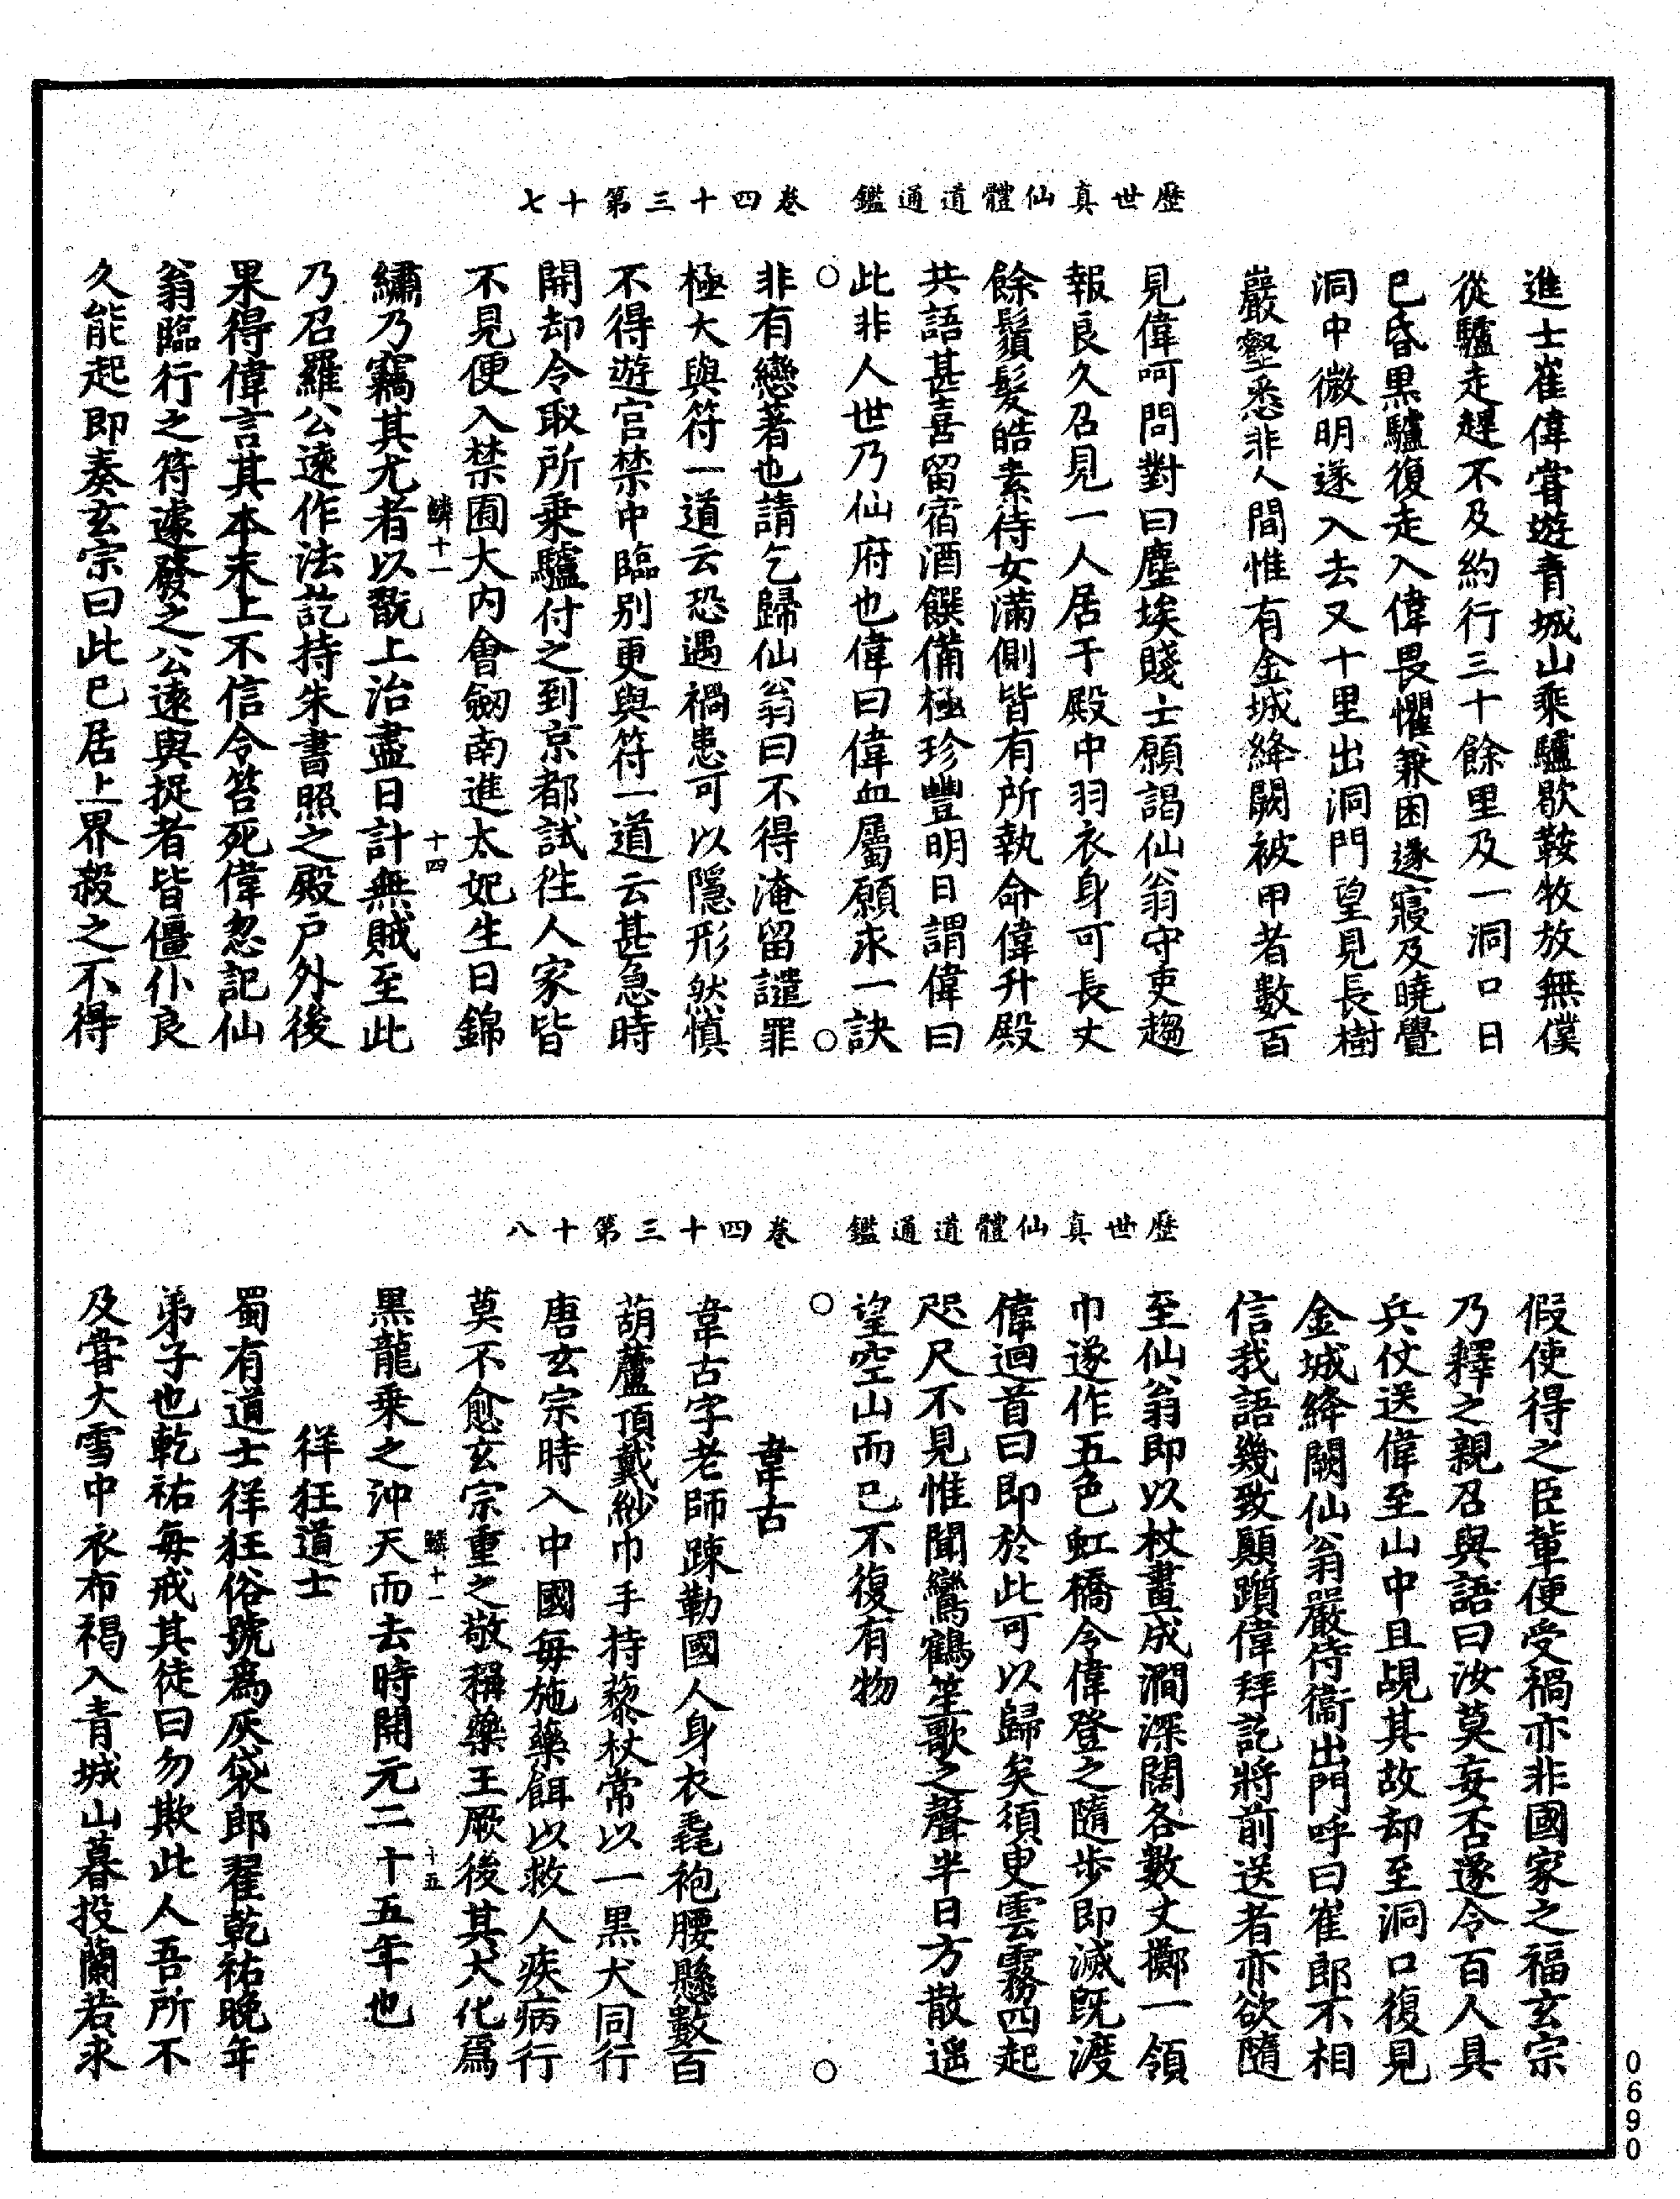 歷世真仙體道通鑑　卷四十三第十七
進士崔偉嘗遊青城山乘驢歇鞍牧放無僕
從驢走趕不及約行三十餘里及一洞口日
已昏黑驢復走入偉畏懼兼困遂寢及曉覺
洞中微明遂入去又十里出洞門望見長樹
巖壑悉非人間惟有金城絳闕被甲者數百
見偉呵問對曰塵埃賤士願謁仙翁守吏趨
報良久召見一人居于殿中羽衣身可長丈
餘鬚髮皓素侍女滿側皆有所執命偉升殿
共語甚喜留宿酒饌備極珍豐明日謂偉曰
此非人世乃仙府也偉曰偉血屬願求一訣
非有戀著也請乞歸仙翁曰不得淹留譴罪
極大與符一道云恐遇禍患可以隱形然慎
不得遊宮禁中臨別更與符一道云甚急時
開却令取所乘驢付之到京都試徃人家皆
不見便入禁囿大內會劒南進太妃生日錦
鱗十一　十四
繡乃竊其尤者以翫上治盡日計無賊至此
乃召羅公遠作法訖持朱書照之殿戶外後
果得偉言其本末上不信令笞死偉忽記仙
翁臨行之符遽發之公遠與捉者皆僵仆良
久能起即奏玄宗曰此已居上界殺之不得
歷世真仙體道通鑑　卷四十三第十八
假使得之臣輩便受禍亦非國家之福玄宗
乃釋之親召與語曰汝莫妄否遂令百人具
兵仗送偉至山中且覘其故却至洞口復見
金城絳闕仙翁嚴侍衛出門呼曰崔郎不相
信我語幾致顛躓偉拜訖將前送者亦欲隨
至仙翁即以杖畫成澗深闊各數丈擲一領
巾遂作五色虹橋令偉登之隨步即滅既渡
偉迴首曰即於此可以歸矣須臾雲霧四起
咫尺不見惟聞鸞鶴笙歌之聲半日方散遥
望空山而已不復有物
韋古
韋古字老師踈勒國人身衣毳袍腰懸數百
葫蘆頂戴紗巾手持藜杖常以一黑犬同行
唐玄宗時入中國每施藥餌以救人疾病行
莫不愈玄宗重之敬稱藥王厥後其犬化爲
鱗十一　十五
黑龍乘之沖天而去時開元二十五年也
徉狂道士
蜀有道士徉狂俗號爲灰袋郎翟乾祐晚年
弟子也乾祐每戒其徒曰勿欺此人吾所不
及嘗大雪中衣布褐入青城山暮投蘭若求
0690